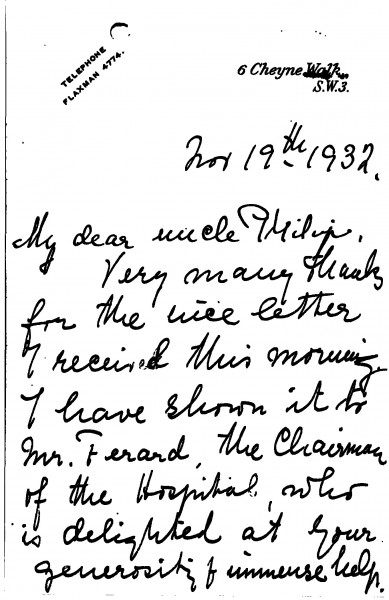 TELEPHONE
FLAXMAN 4774.
6 Cheyne Walk
S.W.3.
Nov 19th 1932.
My dear uncle Philip,
Very many thanks
for the nice letter
I received this morning.
I have shown it to
Mr. Ferard, the Chairman
of the Hospital, who
is delighted at your
generosity & immense help.